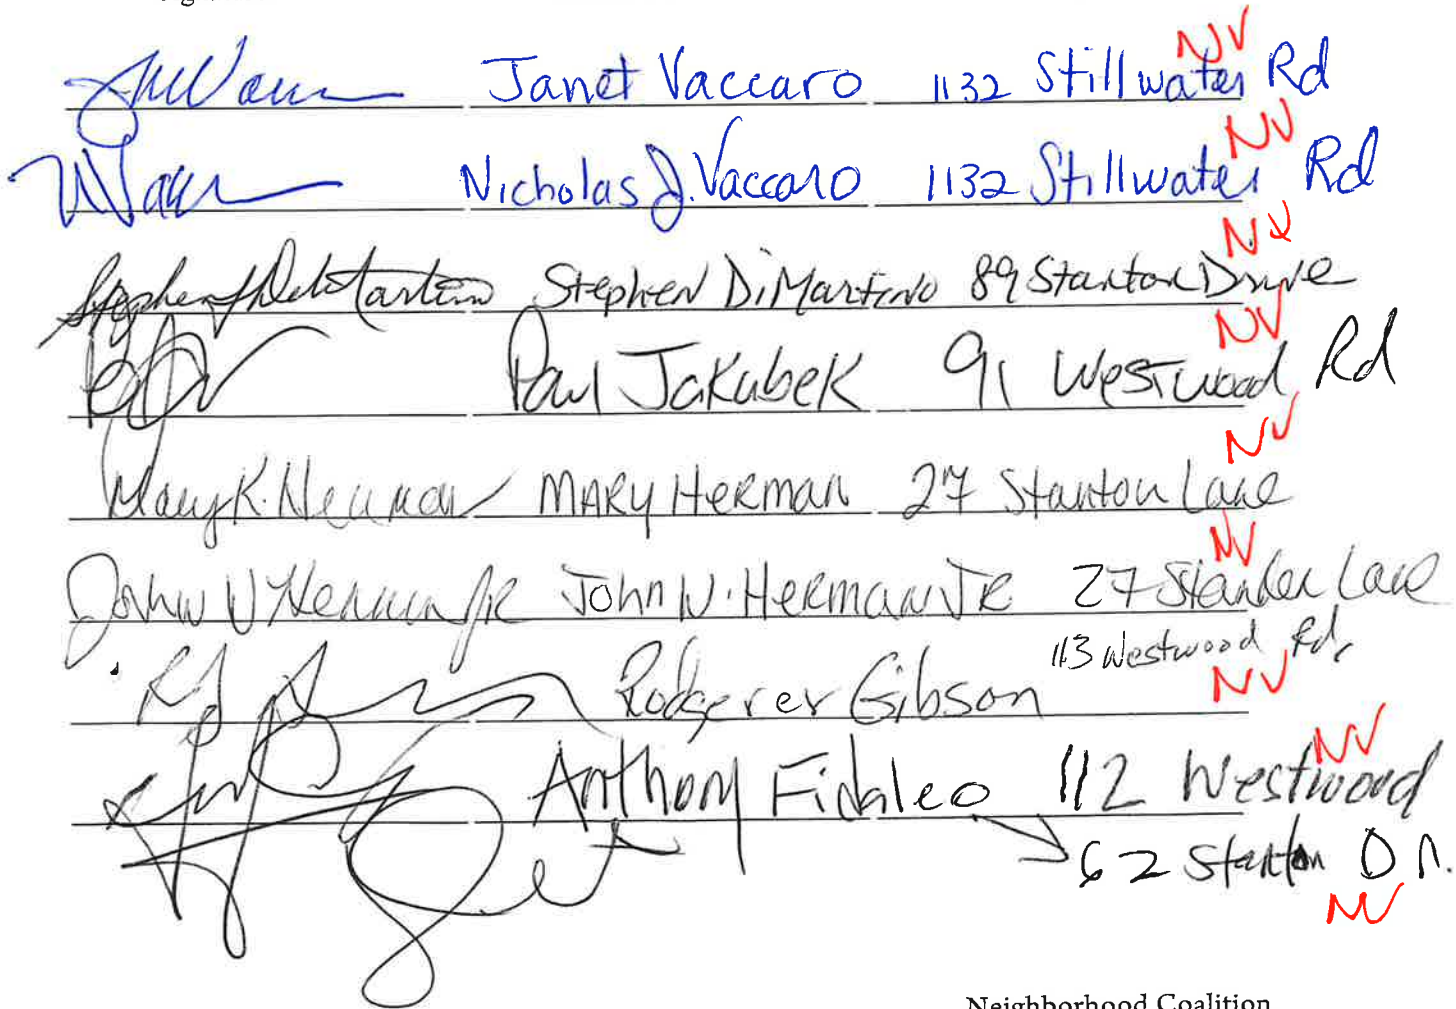 NV
Janet Vaccaro 1132 Stillwater Rd
NV
Nicholas J. Vaccaro 1132 Stillwater Rd
NV
Stephen DiMartino 89 Stanton Drive
NV
Paul Jakubek 91 Westwood Rd
NV
Mary K. Herman MARY HERMAN 27 Stanton Lane
NV
John W Herman JR John W. Herman JR 27 Stanton Lane
113 Westwood Rd.
NV
Gibson
NV
Anthony Fidaleo 112 Westwood
62 Stanton DR.
NV
Neighborhood Coalition